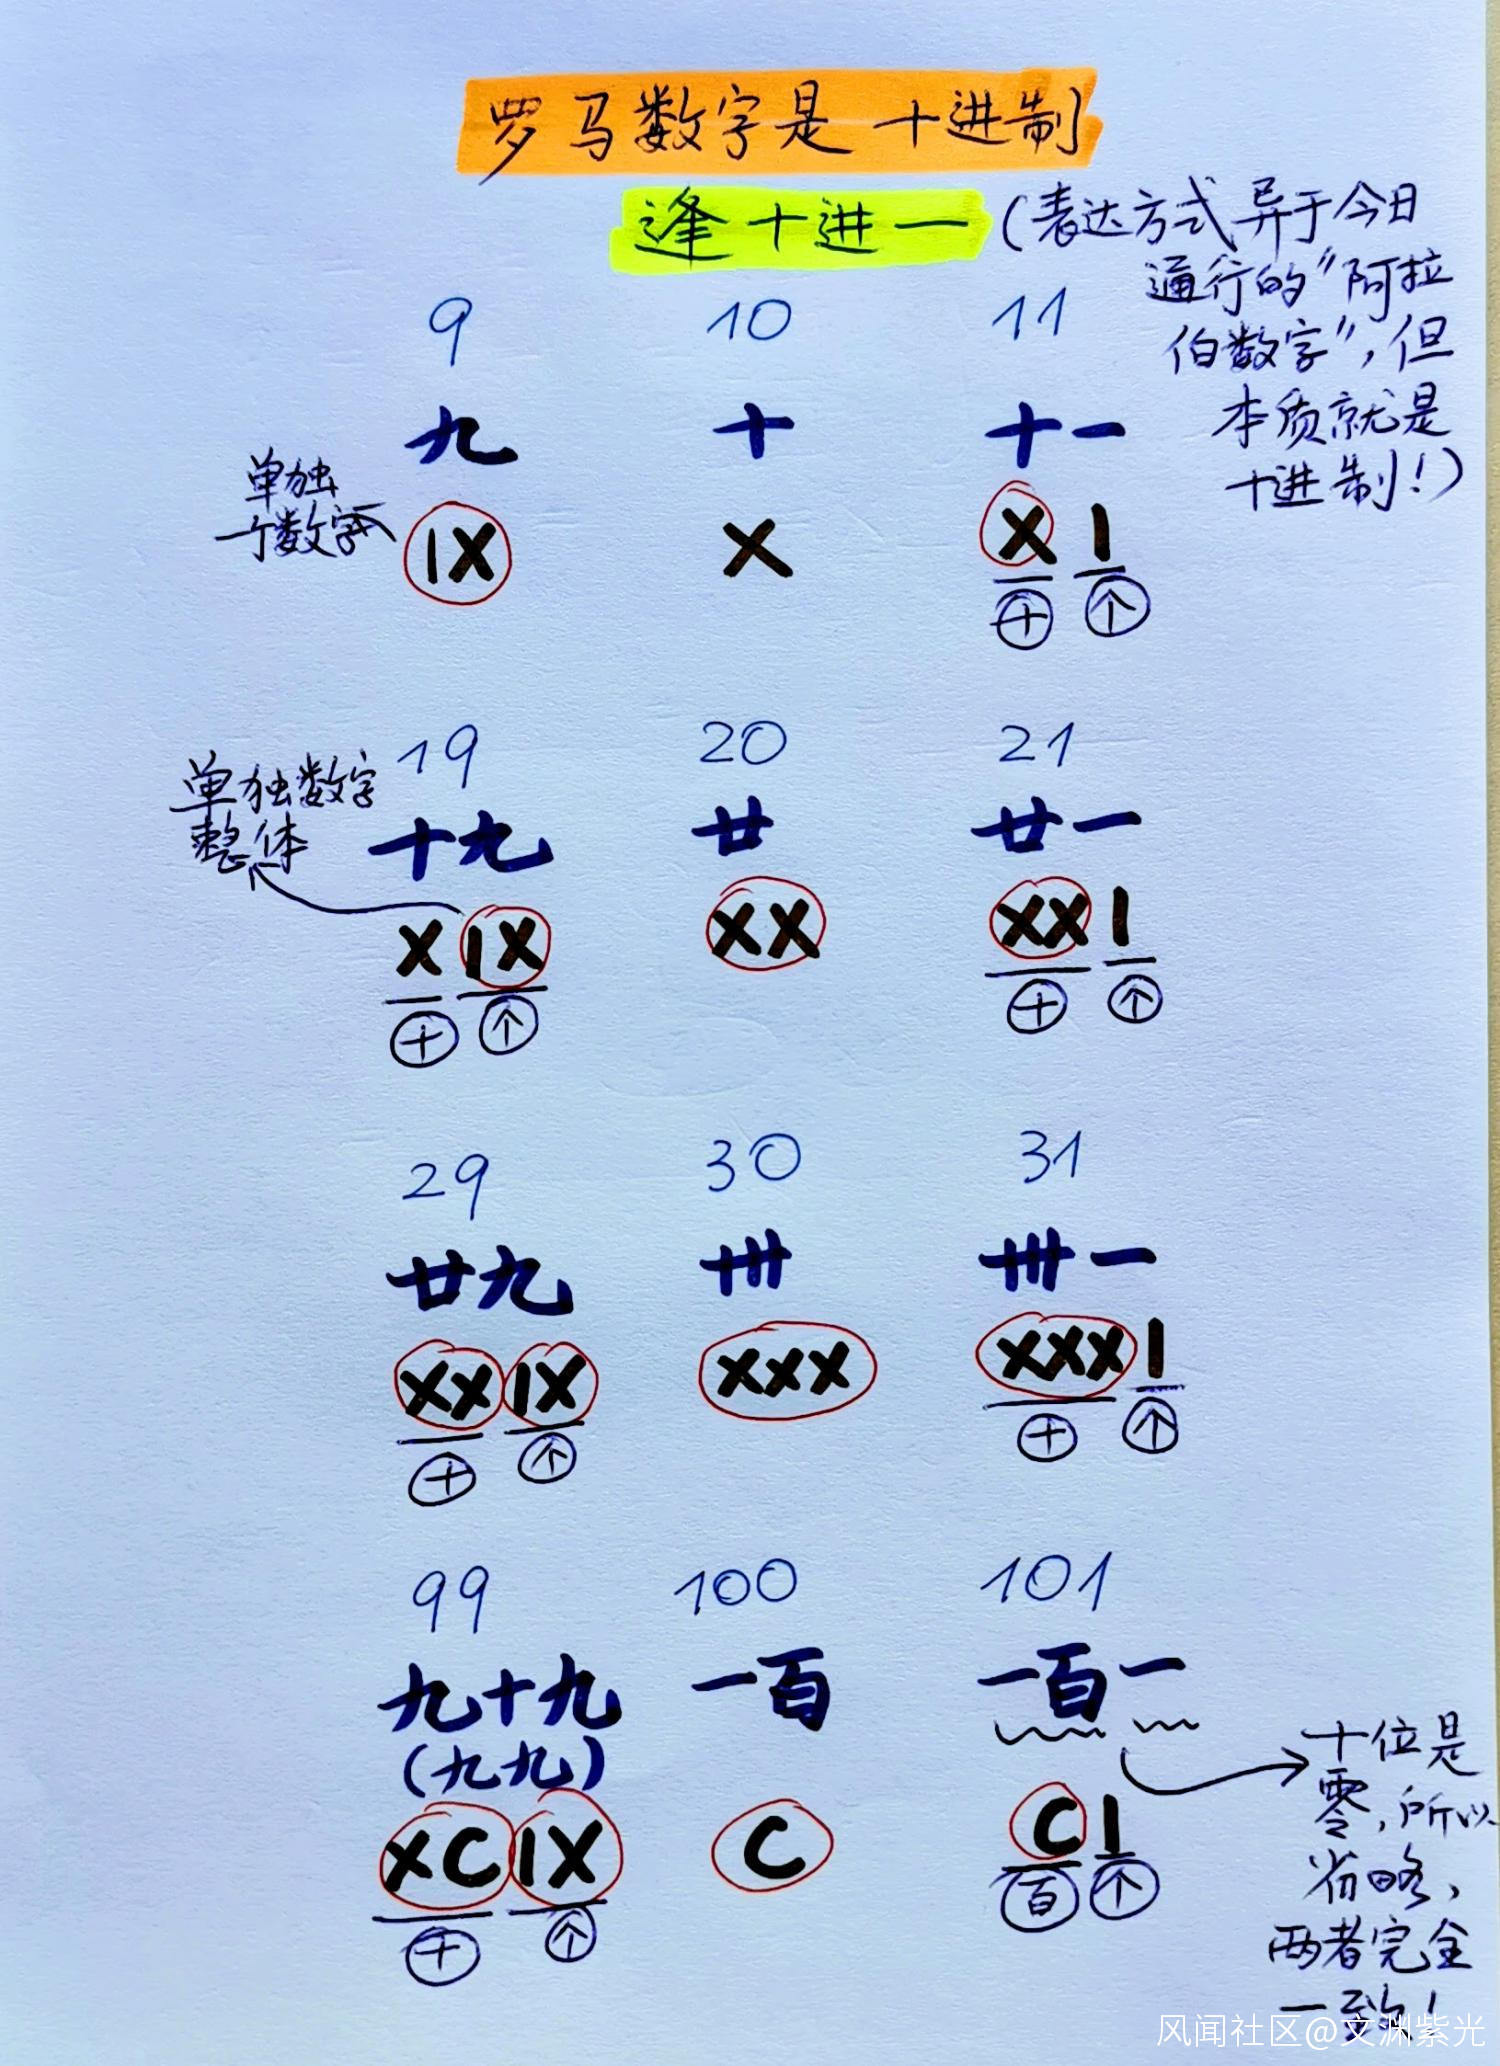 罗马数字是十进制
逢十进一(表达方式异于今日
通行的"阿拉
伯数字",但
本质就是
十进制!)
9 10 11
九 十 十一
单独
个数字
IX X X I
十 个
19 20 21
单独数字
整体
十九 廿 廿一
X IX XX XX I
十 个 十 个
29 30 31
廿九 卅 卅一
XX IX XXX XXX I
十 个 十 个
99 100 101
九十九 一百 一百一
(九九)
XC IX C C I
十 个 百 个
十位是
零,所以
省略,
两者完全
一致!
风闻社区@文渊紫光